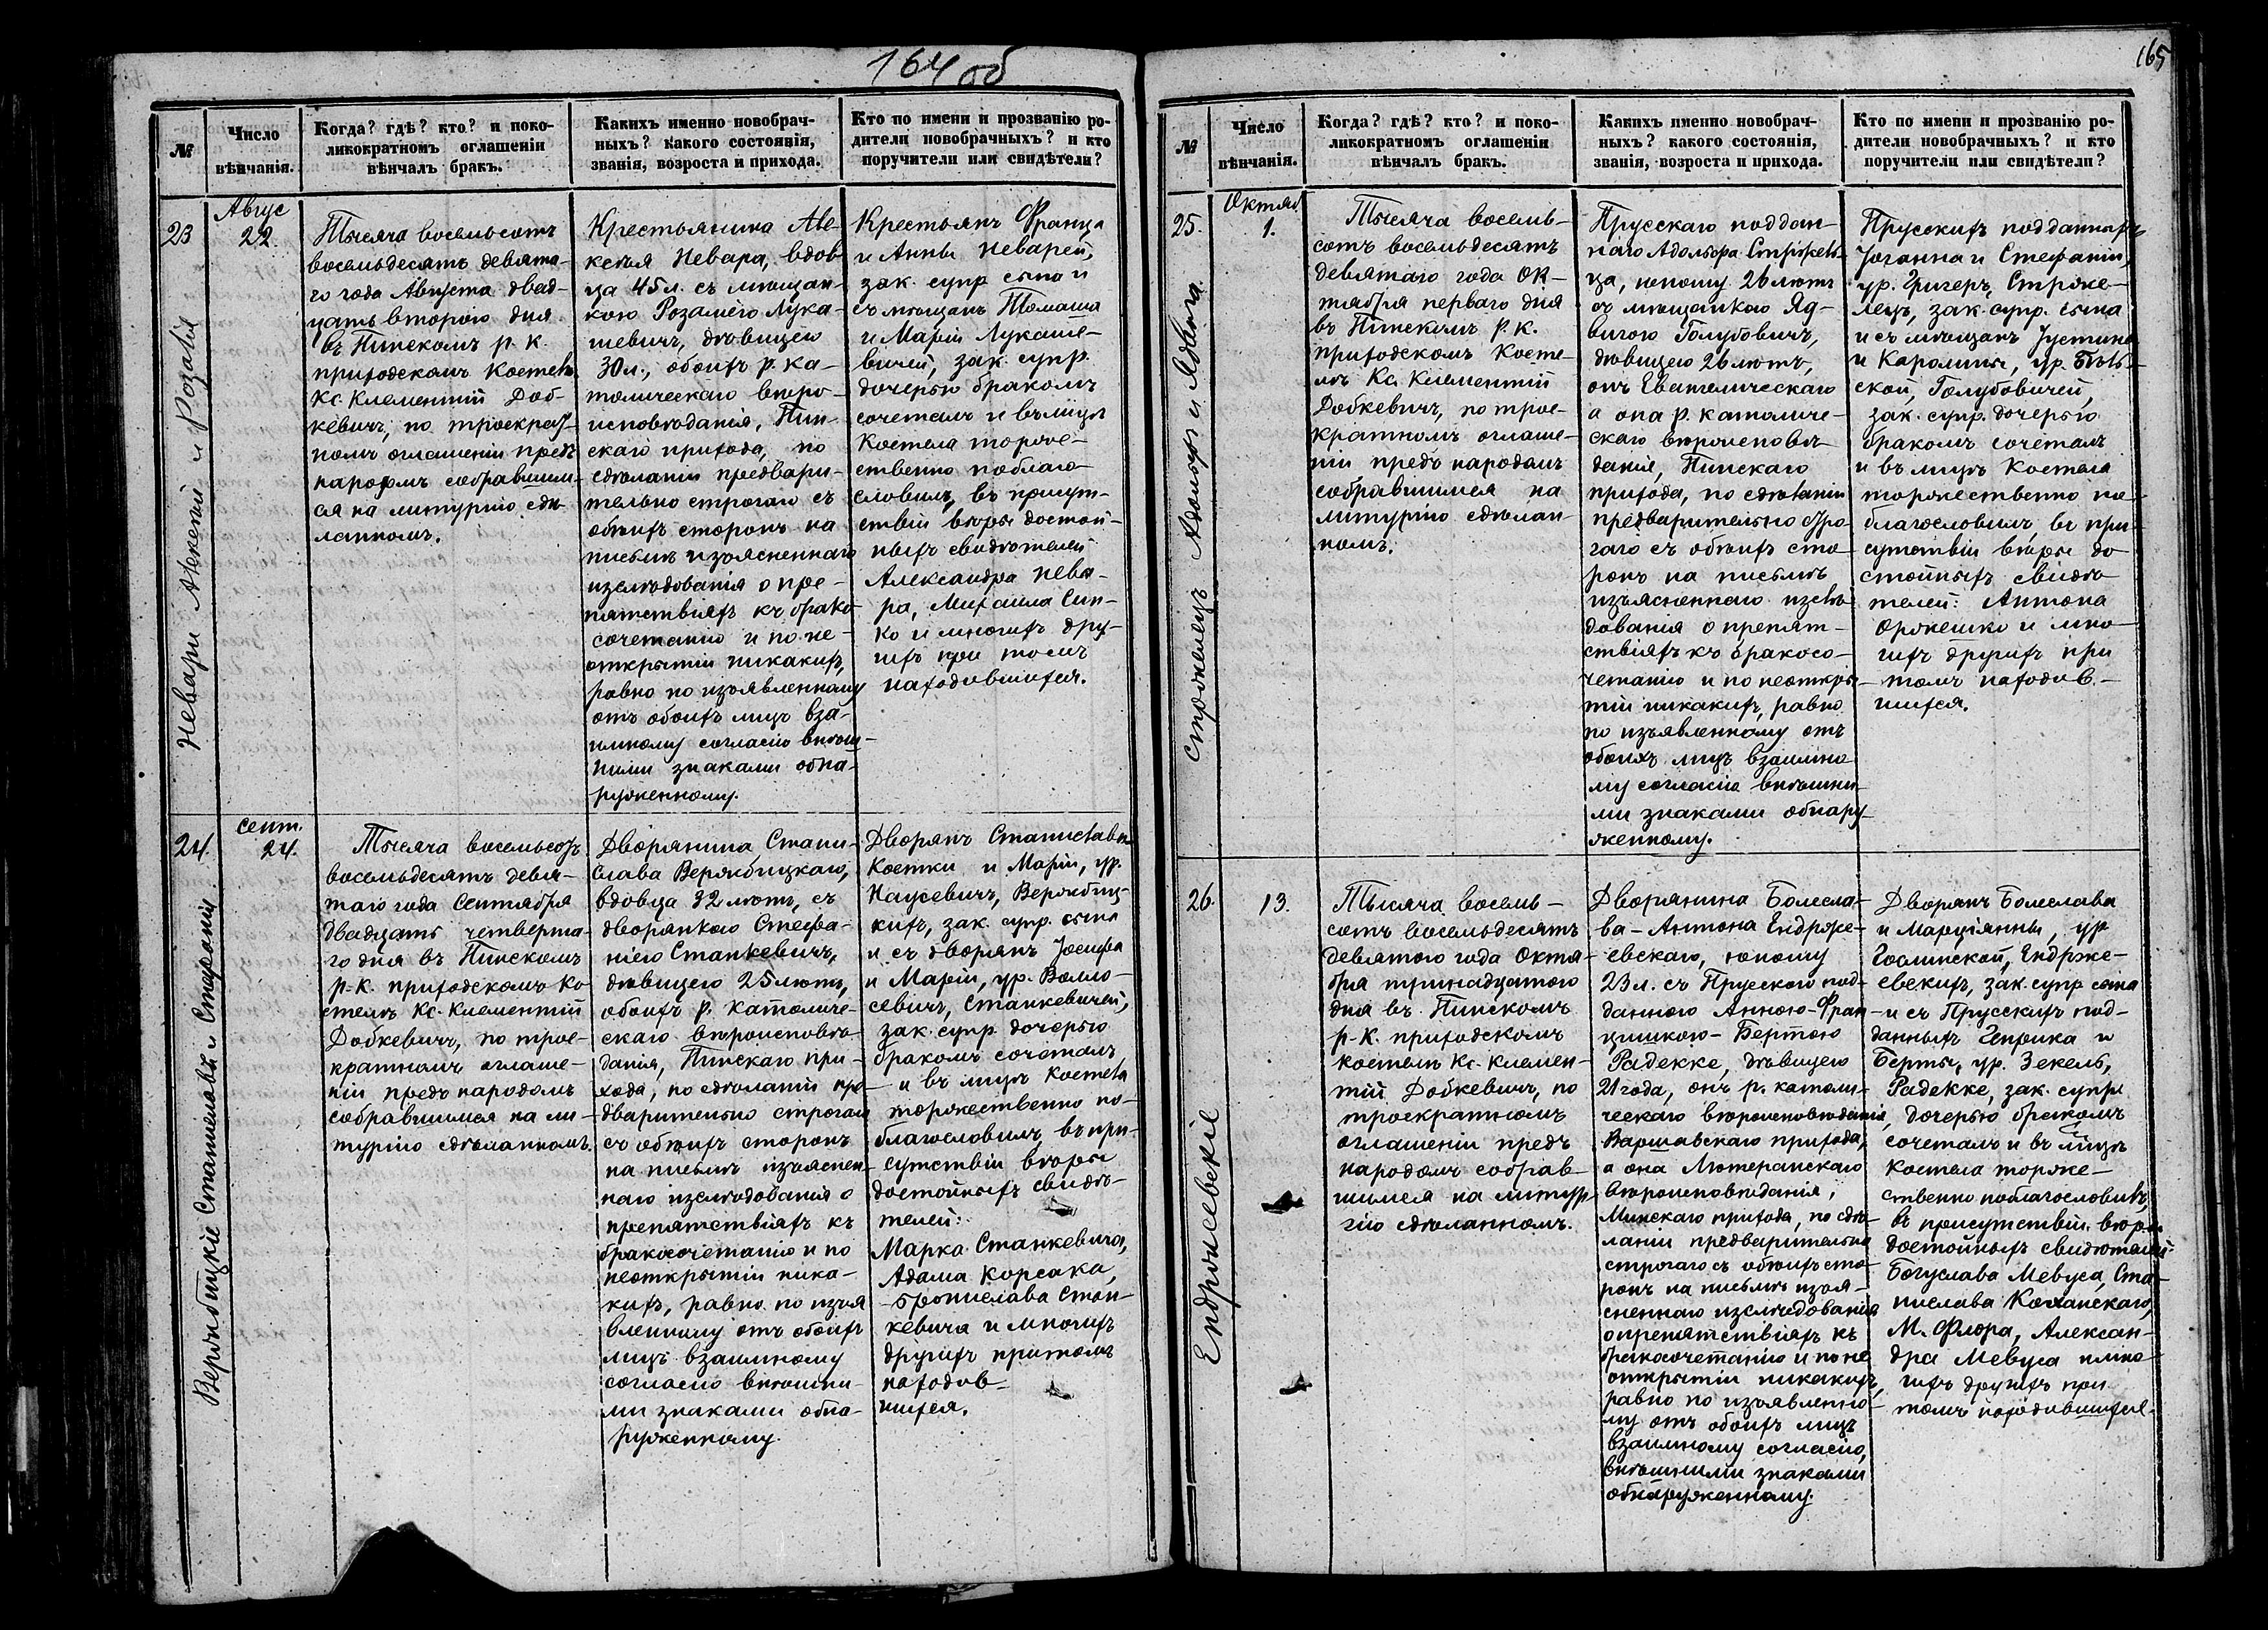 164 об
№
Число вѣнчанія.
Когда? гдѣ? кто? и поко-
ликократномъ оглашеніи
вѣнчалъ бракъ.
Какихъ именно новобрач-
ныхъ? какого состоянія,
званія, возроста и прихода.
Кто по имени и прозванію ро-
дители новобрачныхъ? и кто
поручители или свидѣтели?
23
Невары Алексій и Розалія
Авгус
22.
Тысяча восемьсотъ
восемьдесятъ девята-
го года Августа двад-
цать второго дня
въ Пинскомъ р. к.
приходскомъ костелѣ
Кс. Клементій Доб-
кевичъ, по троекрат-
номъ оглашеніи предъ
народомъ собравшим-
ся на литургію сдѣ-
ланномъ.
Крестьянина Але-
ксѣя Невара, вдов
ца 45 л. съ мѣщан-
кою Розаліею Лука-
шевичъ, дѣвицею
30 л., обоихъ р. ка-
толическаго вѣро-
исповѣданія, Пин-
скаго прихода, по
сдѣланіи предвари-
тельно строгаго съ
обѣихъ сторонъ на
письмѣ изъясненнаго
изслѣдованія о пре-
пятствіяхъ къ брако-
сочетанію и по не-
открытіи никакихъ,
равно по изъявленному
отъ обоихъ лицъ вза-
имному согласію внѣш-
ними знаками обна-
руженному.
Крестьянъ Франца
и Анны Неварей,
зак. супр. сына и
съ мѣщанъ Томаша
и Маріи Лукаше-
вичей, зак. супр.
дочерью бракомъ
сочеталъ и въ лицѣ
костела торже-
ственно поблаго-
словилъ, въ присут-
ствіи вѣры достой-
ныхъ свидѣтелей
Александра Нева-
ра, Михаила Син-
ко и многихъ дру-
гихъ при томъ
находившихся.
24.
Вержбицкіе Станиславъ и Стефанія
Сент.
24.
Тысяча восемьсотъ
восемьдесятъ девя-
таго года Сентября
двадцать четверта-
го дня въ Пинскомъ
р-к. приходскомъ ко
стелѣ Кс. Клементій
Добкевичъ, по трое-
кратномъ оглаше-
ніи предъ народомъ
собравшимся на ли-
тургію сдѣланномъ.
Дворянина Стани-
слава Вержбицкаго,
вдовца 32 лѣтъ, съ
дворянкою Стефа-
ніею Станкевичъ,
дѣвицею 25 лѣтъ,
обоихъ р. католиче-
скаго вѣроисповѣ-
данія, Пинскаго при-
хода, по сдѣланіи пре-
дварительно строгаго
съ обѣихъ сторонъ
на письмѣ изъяснен-
наго изслѣдованія о
препятствіяхъ къ
бракосочетанію и по
неоткрытіи ника-
кихъ, равно по изъя
вленному отъ обоихъ
лицъ взаимному
согласію внѣшни-
ми знаками обна-
руженному.
Дворянъ Станислава
Костки и Маріи, ур.
Вержбиц-
кихъ, зак. супр. сына
и съ дворянъ Іосифа
и Маріи, ур. Волло-
севичъ, Станкевичей,
зак. супр. дочерью
бракомъ сочеталъ
и въ лицѣ костела
торжественно по-
благословилъ, въ при-
сутствіи вѣры
достойныхъ свидѣ-
телей:
Марка Станкевича,
Адама Корсака,
Бронислава Стан-
кевича и многихъ
другихъ притомъ
находив-
шихся.
165
№
Число вѣнчанія.
Когда? гдѣ? кто? и поко-
ликократномъ оглашеніи
вѣнчалъ бракъ.
Какихъ именно новобрач-
ныхъ? какого состоянія,
званія, возроста и прихода.
Кто по имени и прозванію ро-
дители новобрачныхъ? и кто
поручители или свидѣтели?
25.
Стржелецъ Адольфъ и Ядвига
Октяб
1.
Тысяча восемь-
сотъ восемьдесятъ
девятаго года Ок-
тября перваго дня
въ Пинскомъ р. к.
приходскомъ косте-
лѣ Кс. Клементій
Добкевичъ, по трое-
кратномъ оглаше-
ніи предъ народомъ
собравшимся на
литургію сдѣлан-
номъ.
Прусскаго поддан-
наго Адольфа Стржель-
ца, юношу 26 лѣтъ
съ мѣщанкою Яд-
вигою Голубовичъ,
дѣвицею 26 лѣтъ,
онъ Евангелическаго
а она р. католиче-
скаго вѣроисповѣ-
данія, Пинскаго
прихода, по сдѣланіи
предварительно стро-
гаго съ обѣихъ сто-
ронъ на письмѣ
изъясненнаго изслѣ-
дованія о препят-
ствіяхъ къ бракосо-
четанію и по неоткры-
тіи никакихъ, равно
по изъявленному отъ
обоихъ лицъ взаимно
му согласію внѣшни-
ми знаками обнару-
женному.
Прусскихъ подданныхъ
Іоганна и Стефаніи,
ур. Григеръ, Стрже-
лецъ, зак. супр. сына
и съ мѣщанъ Іустина
и Каролины, ур. Бѣль-
ской, Голубовичей,
зак. супр. дочерью
бракомъ сочеталъ
и въ лицѣ костела
торжественно по-
благословилъ, въ при-
сутствіи вѣры до
стойныхъ свидѣ
телей: Антона
Оржешко и мно-
гихъ другихъ при
томъ находив-
шихся.
26.
Ендржеевскіе
13.
Тысяча восемь-
сотъ восемьдесятъ
девятого года Октя-
бря тринадцатого
дня въ Пинскомъ
р-к. приходскомъ
костелѣ Кс. Клемен-
тій Добкевичъ, по
троекратномъ
оглашеніи предъ
народомъ собрав
шимся на литур-
гію сдѣланномъ.
Дворянина Болесла-
ва-Антона Ендрже-
евскаго, юношу
23 л. съ Прусскою под-
данною Анною-Фран-
цишкою-Бертою
Радекке, дѣвицею
21 года, онъ р. католи-
ческаго вѣроисповѣданія,
Варшавскаго прихода,
а она Лютеранскаго
вѣроисповѣданія,
Минскаго прихода, по сдѣ-
ланіи предварительно
строгаго съ обѣихъ сто-
ронъ на письмѣ изъя-
сненнаго изслѣдованія
о препятствіяхъ къ
бракосочетанію и по не
открытіи никакихъ,
равно по изъявленно-
му отъ обоихъ лицъ
взаимному согласію,
внѣшними знаками
обнаруженному.
Дворянъ Болеслава
и Марціанны, ур
Гослинской, Ендрже-
евскихъ, зак. супр. сына
и съ Прусскихъ под-
данныхъ Генрика и
Берты, ур. Зекель,
Радекке, зак. супр.
дочерью бракомъ
сочеталъ и въ лицѣ
костела торже-
ственно поблагословилъ,
въ присутствіи вѣры
достойныхъ свидѣтелей:
Богуслава Мевуса, Ста-
нислава Коханскаго,
М. Флора, Алексан-
дра Мевуса и мно-
гихъ другихъ при
томъ находившихся.